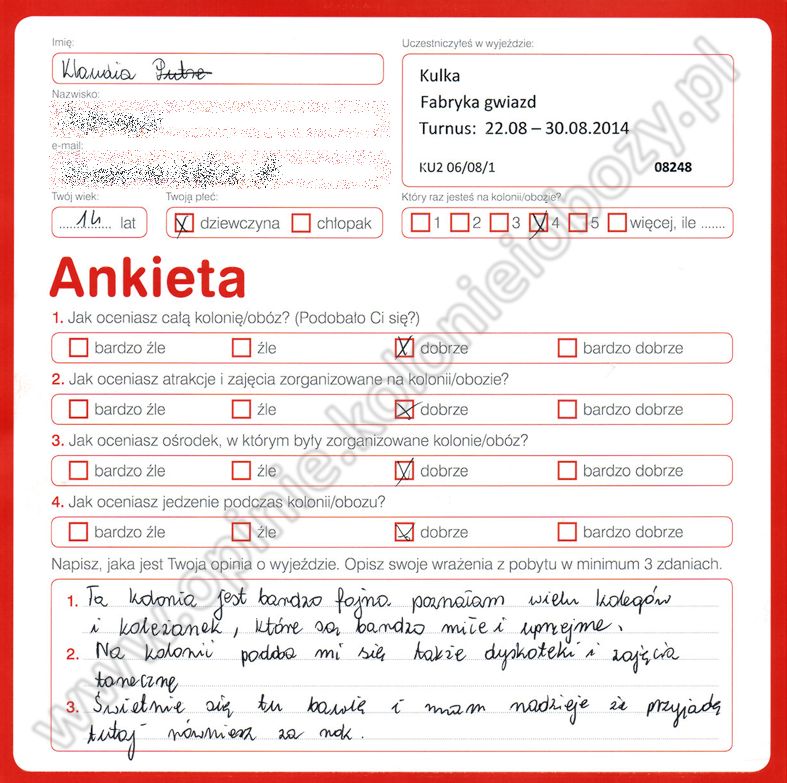 Imię:
Klaudia
Nazwisko:
e-mail:
Twój wiek:
14 lat
Twoja płeć:
dziewczyna chłopak
Uczestniczyłeś w wyjeździe:
Kulka
Fabryka gwiazd
Turnus: 22.08 – 30.08.2014
KU2 06/08/1 08248
Który raz jesteś na kolonii/obozie?
1 2 3 4 5 więcej, ile .......
Ankieta
1. Jak oceniasz całą kolonię/obóz? (Podobało Ci się?)
bardzo źle źle dobrze bardzo dobrze
2. Jak oceniasz atrakcje i zajęcia zorganizowane na kolonii/obozie?
bardzo źle źle dobrze bardzo dobrze
3. Jak oceniasz ośrodek, w którym były zorganizowane kolonie/obóz?
bardzo źle źle dobrze bardzo dobrze
4. Jak oceniasz jedzenie podczas kolonii/obozu?
bardzo źle źle dobrze bardzo dobrze
Napisz, jaka jest Twoja opinia o wyjeździe. Opisz swoje wrażenia z pobytu w minimum 3 zdaniach.
1. Ta kolonia jest bardzo fajna poznałam wielu kolegów
i koleżanek, które są bardzo miłe i uprzejme.
2. Na kolonii podoba mi się także dyskoteki i zajęcia
tanecznę
3. Świetnie się tu bawię i mam nadzieje że przyjadę
tutaj również za rok.
www.opinie.kolonieiobozy.pl